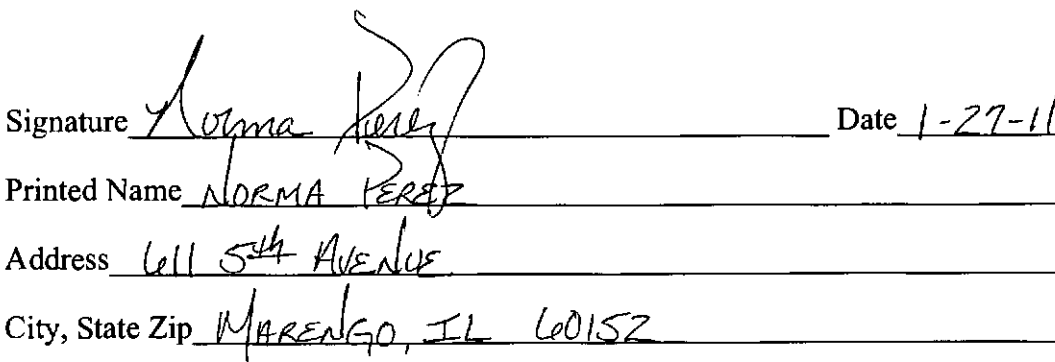 Signature Norma Perez Date 1-27-11
Printed Name NORMA PEREZ
Address 611 5th AVENUE
City, State Zip MARENGO, IL 60152